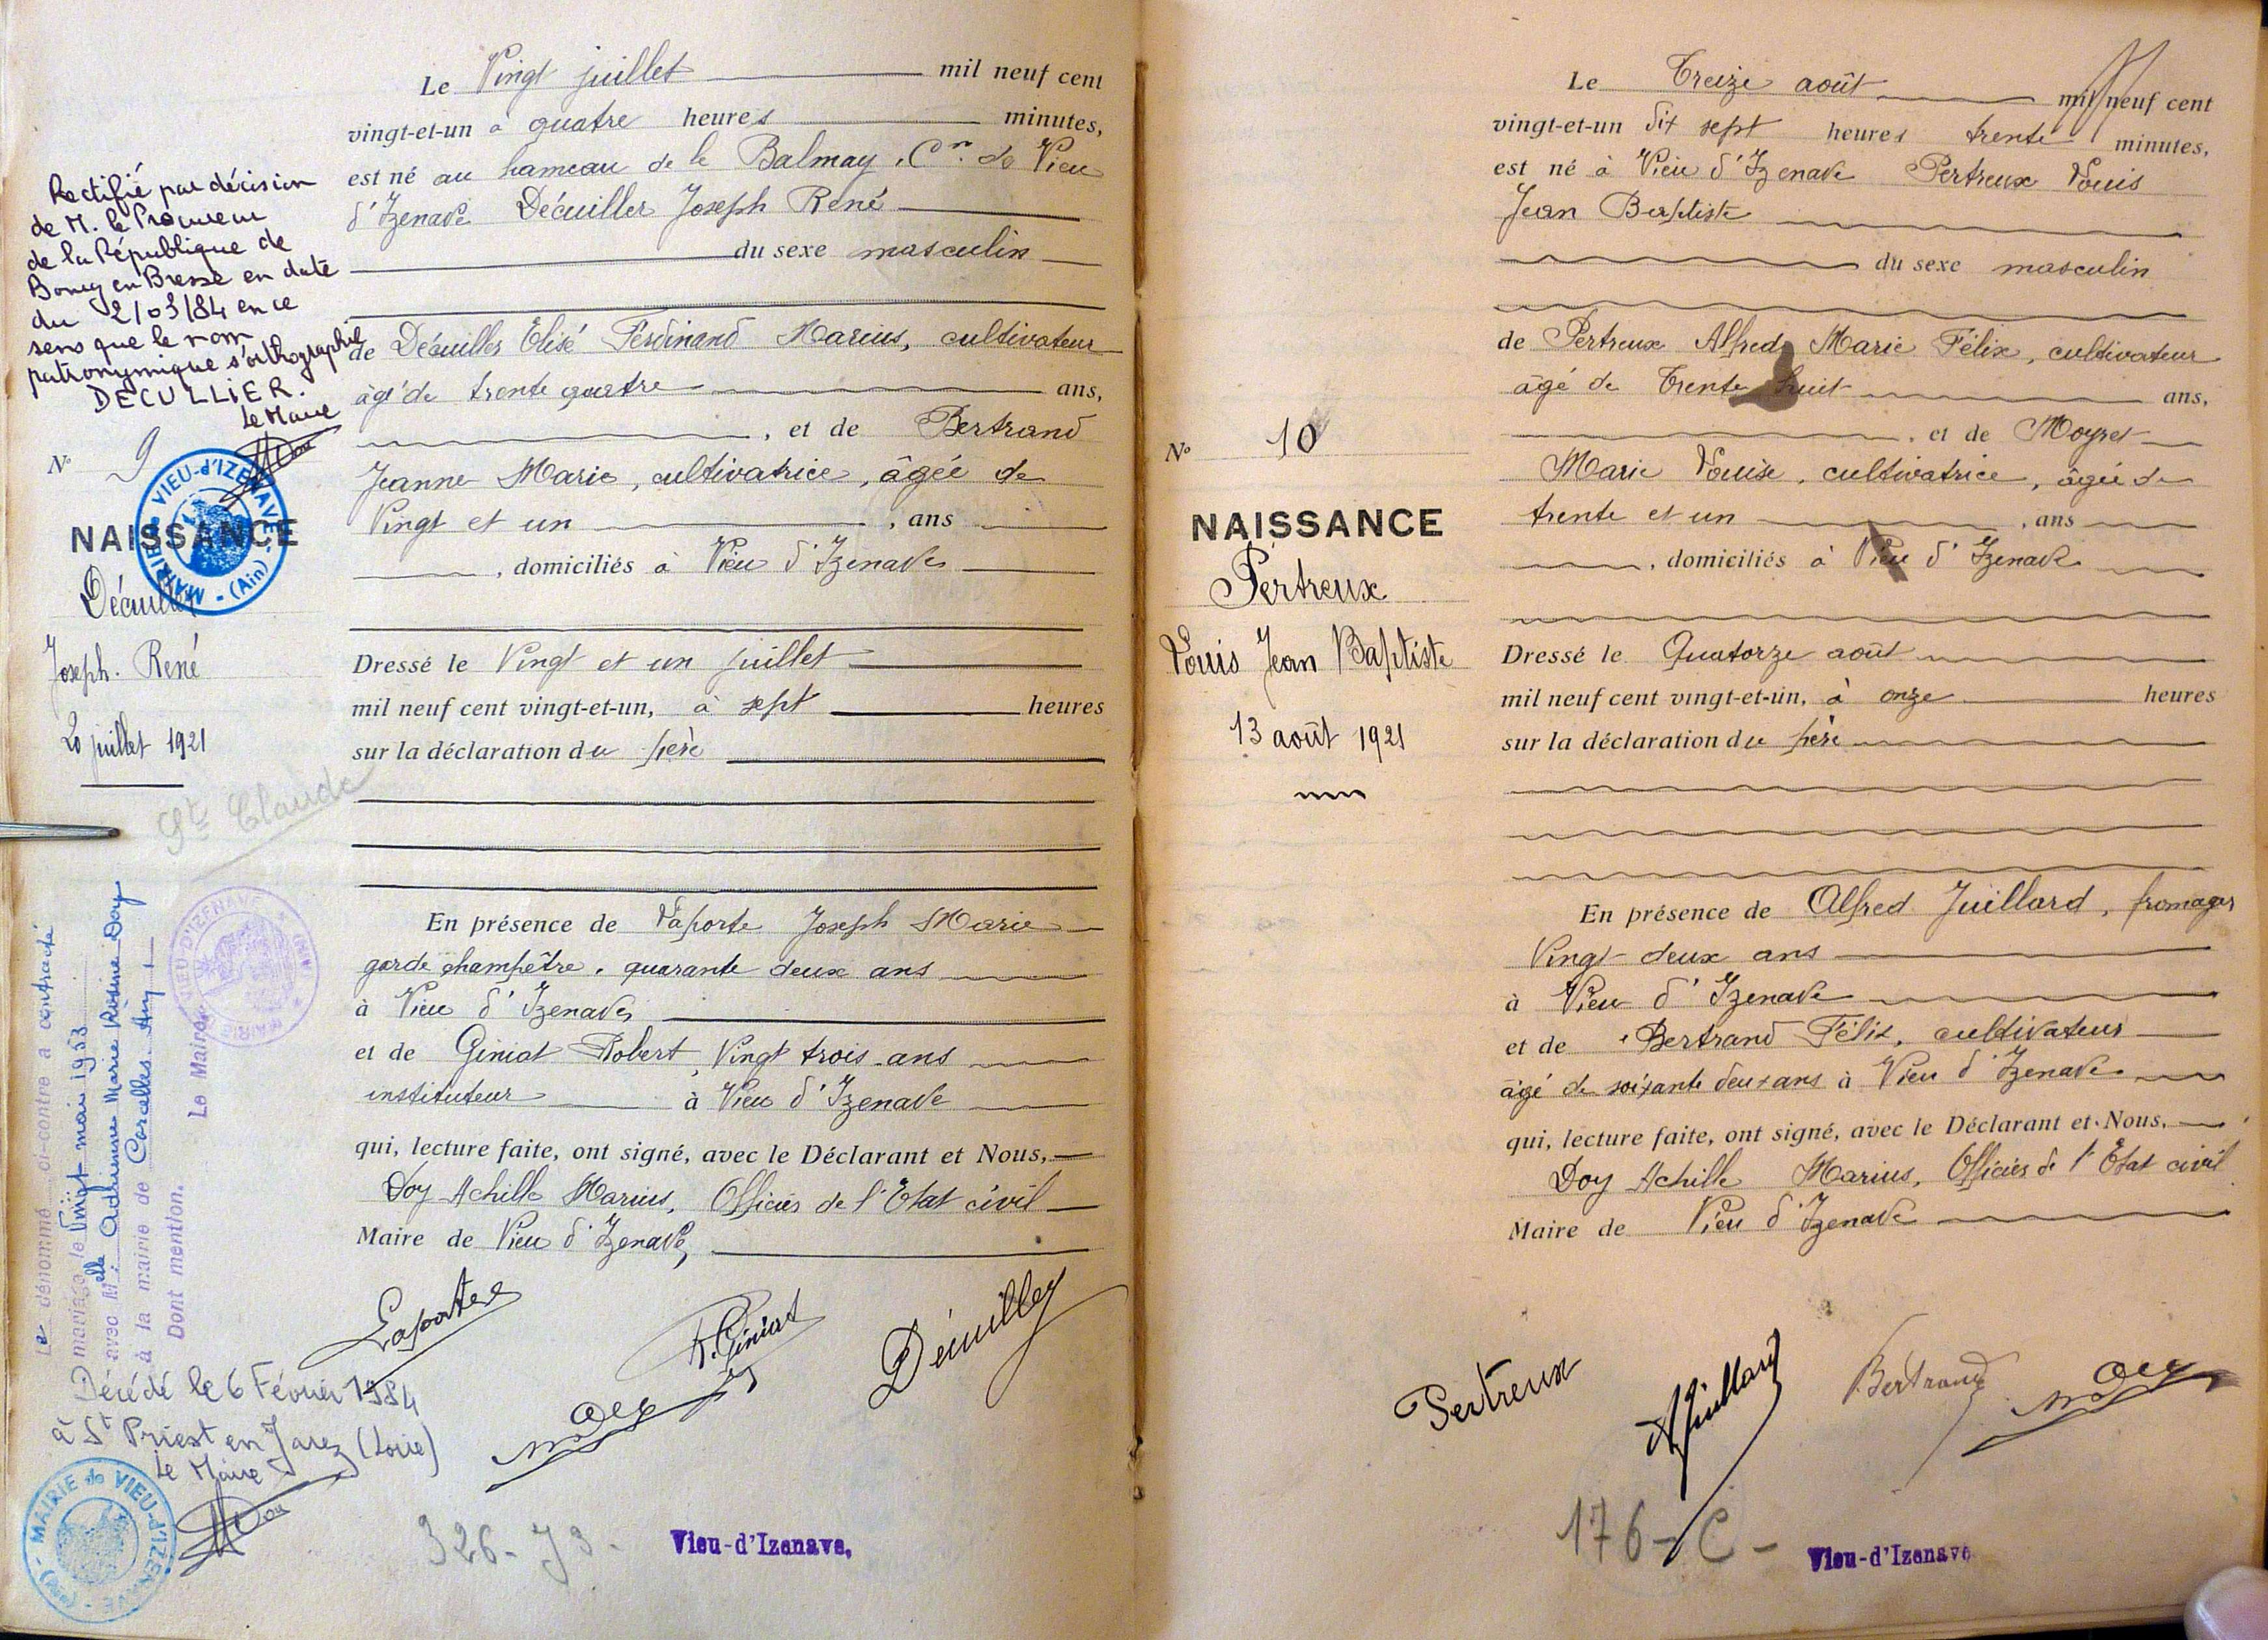 Le Vingt juillet mil neuf cent
vingt-et-un à quatre heures minutes,
est né au hameau de le Balmay, Cne de Vieu
d'Izenave Décuiller Joseph René
du sexe masculin
de Décuiller Elisé Ferdinand Marius, cultivateur
âgé de trente quatre ans,
, et de Bertrand
Jeanne Marie, cultivatrice, âgée de
Vingt et un , ans
, domiciliés à Vieu d'Izenave
Dressé le Vingt et un juillet
mil neuf cent vingt-et-un, à sept heures
sur la déclaration du père
En présence de Laporte Joseph Marie
garde champêtre, quarante deux ans
à Vieu d'Izenave
et de Giniat Robert, Vingt trois ans
instituteur à Vieu d'Izenave
qui, lecture faite, ont signé, avec le Déclarant et Nous,
Doy Achille Marius, Officier de l'Etat civil
Maire de Vieu d'Izenave,
Laporte
R. Giniat
Décuiller
Doy
326-J3-
Vieu-d'Izenave,
Rectifié par décision
de M. le Procureur
de la République de
Bourg en Bresse en date
du 2/03/84 en ce
sens que le nom
patronymique s'orthographie
DECULLIER.
Le Maire
N° 9
MAIRIE de VIEU-d'IZENAVE - (Ain) -
NAISSANCE
Décuiller
Joseph. René
20 juillet 1921
St Claude
Le dénommé ci-contre a contracté
mariage le Vingt mai 1953
avec Melle Adrienne Marie Rosine Doy
à la mairie de Corcelles Ain
Dont mention.
Le Maire,
MAIRIE de VIEU-D'IZENAVE (AIN)
Décédé le 6 Février 1984
à St Priest en Jarez (Loire)
Le Maire
MAIRIE de VIEU-D'IZENAVE - (Ain) -
Le Treize août mil neuf cent
vingt-et-un dix sept heures trente minutes,
est né à Vieu d'Izenave Pertreux Louis
Jean Baptiste
du sexe masculin
de Pertreux Alfred Marie Félix, cultivateur
âgé de Trente huit ans,
, et de Moyret
Marie Louise, cultivatrice, âgée de
trente et un , ans
, domiciliés à Vieu d'Izenave
Dressé le Quatorze août
mil neuf cent vingt-et-un, à onze heures
sur la déclaration du père
En présence de Alfred Juillard, fromager
Vingt-deux ans
à Vieu d'Izenave
et de Bertrand Félix, cultivateur
âgé de soixante deux ans à Vieu d'Izenave
qui, lecture faite, ont signé, avec le Déclarant et Nous,
Doy Achille Marius, Officier de l'Etat civil
Maire de Vieu d'Izenave
Pertreux
A Juillard
Bertrand
Doy
176-C-
Vieu-d'Izenave
N° 10
NAISSANCE
Pertreux
Louis Jean Baptiste
13 août 1921